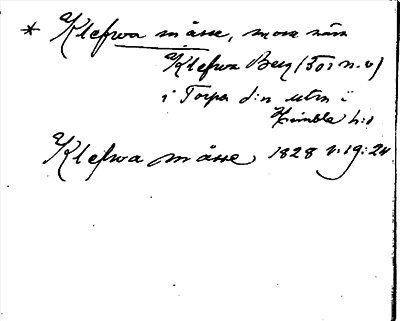 * Klefwa måsse, mosse nära
Klefwa Berg (Tor n.v)
i Torpa d:n utm i
Himble h:d
Klefwa måsse 1828 v:19:24